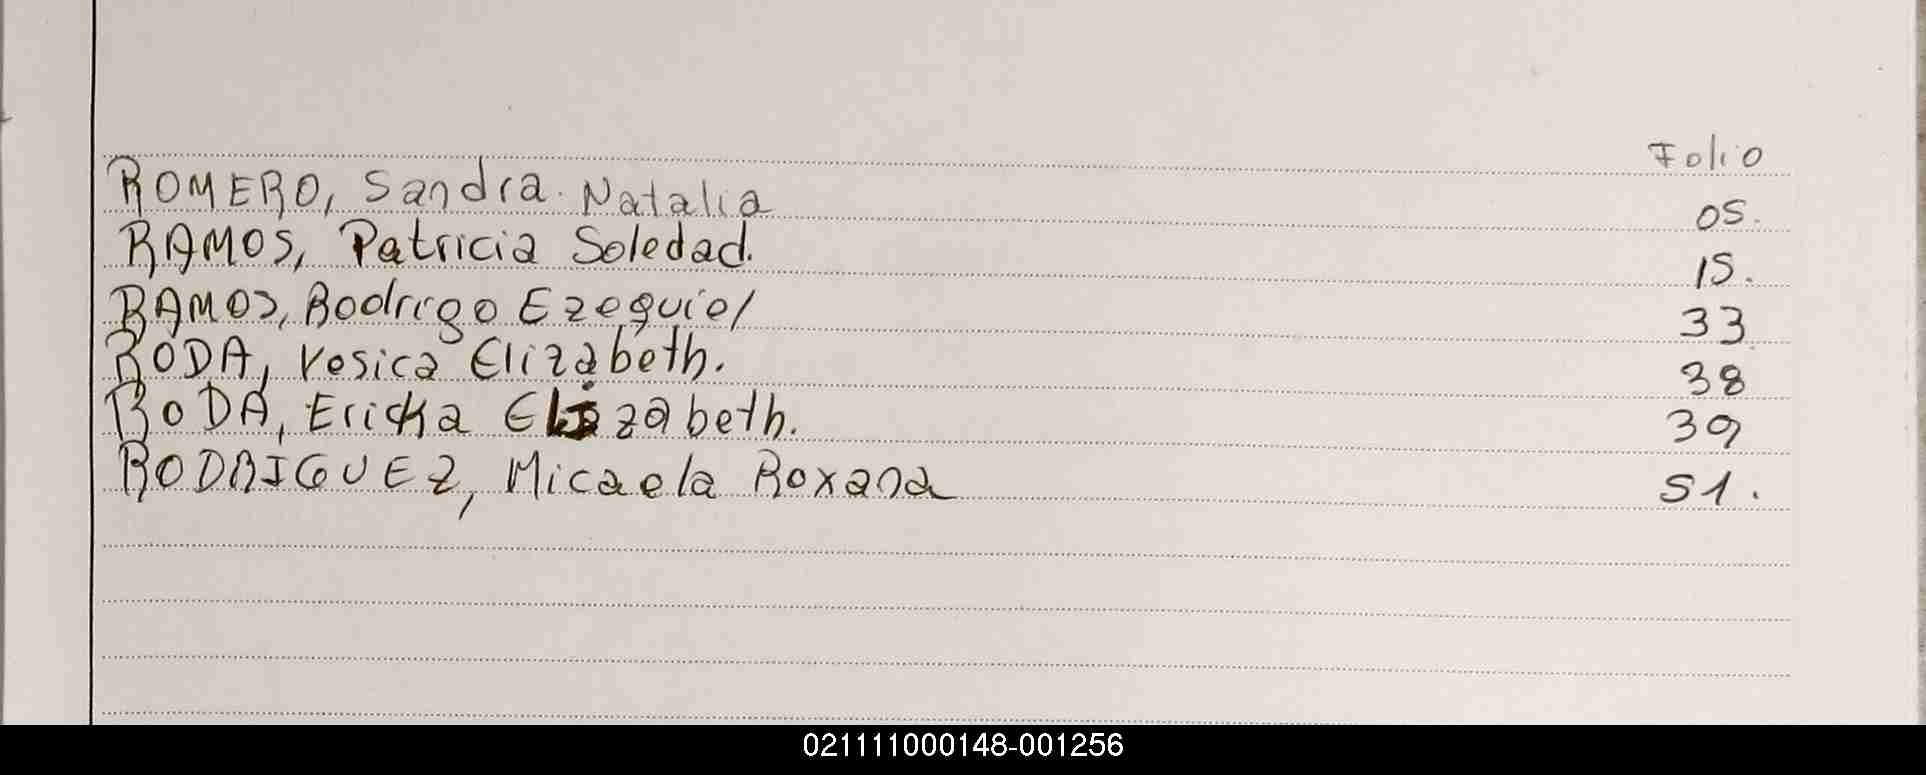 Folio
ROMERO, Sandra Natalia 05.
RAMOS, Patricia Soledad. 15.
RAMOS, Rodrigo Ezequiel 33
RODA, Yesica Elizabeth. 38
RODA, Ericka Elizabeth. 39
RODRIGUEZ, Micaela Roxana 51.
021111000148-001256